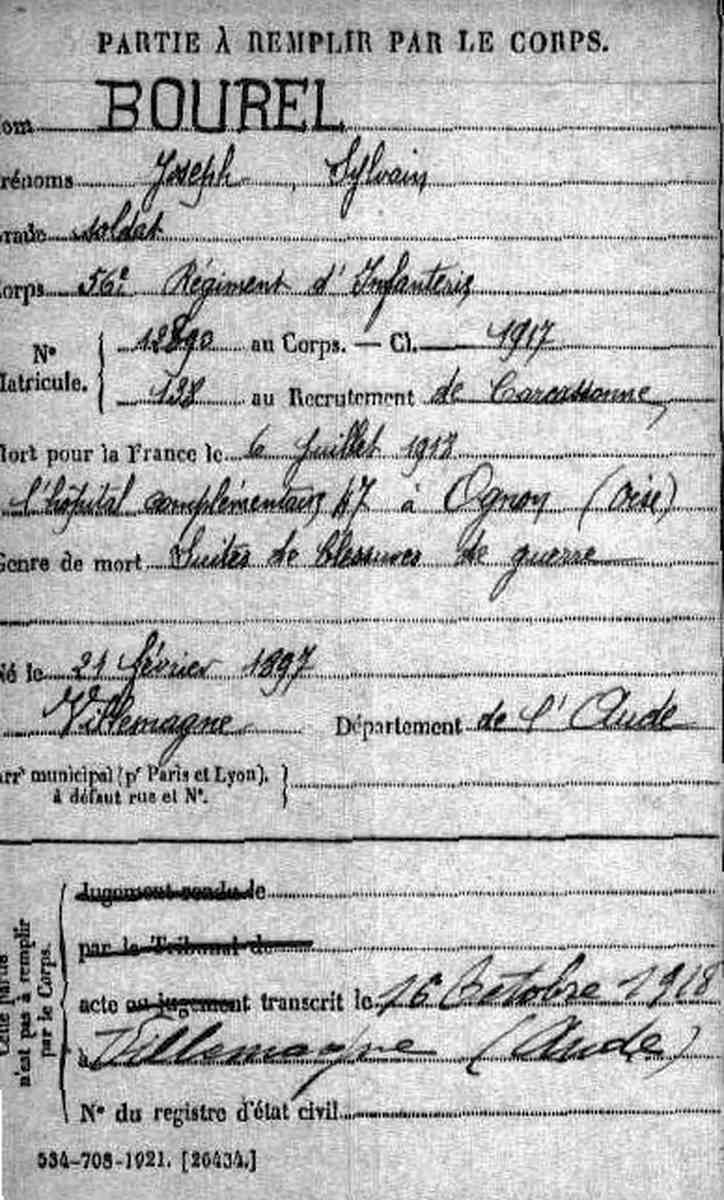 PARTIE À REMPLIR PAR LE CORPS.
om BOUREL
rénoms Joseph, Sylvain
rade soldat
orps 56e Régiment d'Infanterie
N° 12890 au Corps. — Cl. 1917
Matricule. 138 au Recrutement de Carcassonne
Mort pour la France le 6 Juillet 1918
l'hôpital complémentaire 47 à Ognon (Oise)
Genre de mort Suites de blessures de guerre
Né le 21 février 1897
Villemagne Département de l'Aude
arrt municipal (pr Paris et Lyon),
à défaut rue et N°.
Cette partie
n'est pas à remplir
par le Corps.
Jugement rendu le
par le Tribunal de
acte ou jugement transcrit le 16 Octobre 1918
à Villemagne (Aude)
N° du registre d'état civil
534-708-1921. [26434.]